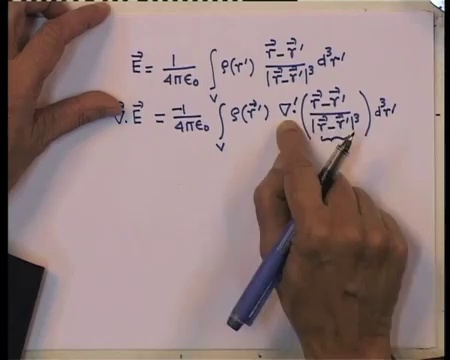 \vec{E} = \frac{1}{4\pi\epsilon_0} \int_V \rho(r') \frac{\vec{r} - \vec{r}'}{|\vec{r} - \vec{r}'|^3} d^3r'
\vec{\nabla} \cdot \vec{E} = \frac{-1}{4\pi\epsilon_0} \int_V \rho(\vec{r}') \nabla' \cdot \left( \frac{\vec{r} - \vec{r}'}{|\vec{r} - \vec{r}'|^3} \right) d^3r'